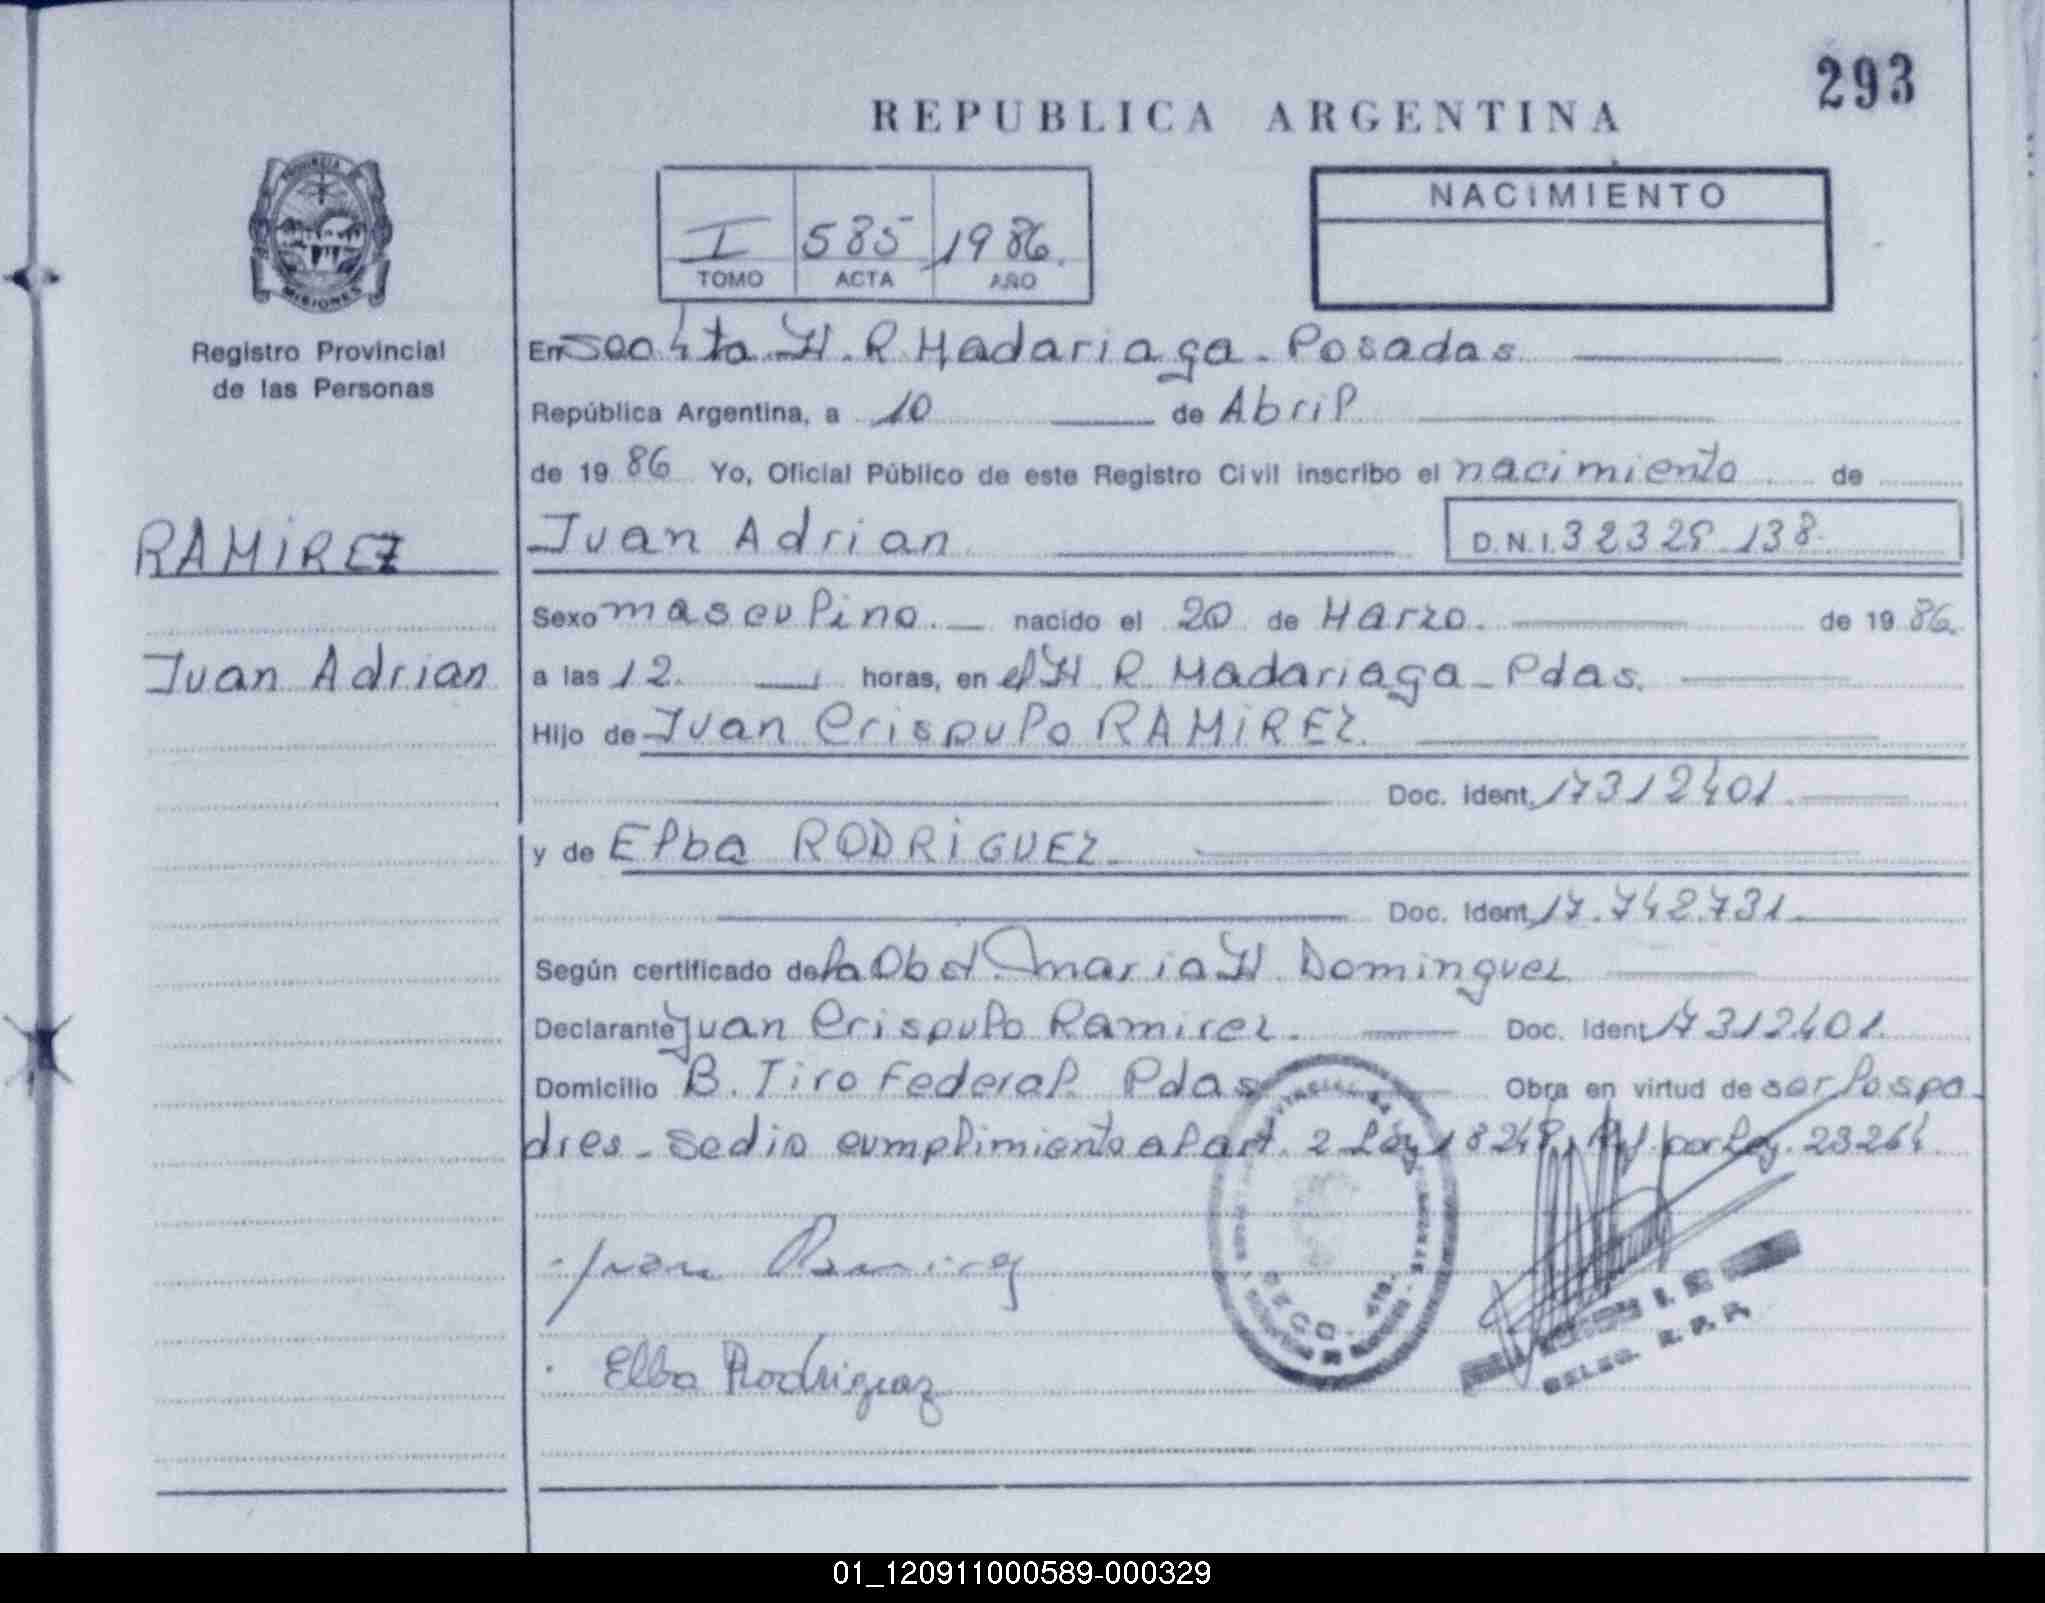 293
REPUBLICA ARGENTINA
PROVINCIA
MISIONES
Registro Provincial
de las Personas
I 585 1986.
TOMO ACTA AÑO
NACIMIENTO
En Secc 4ta H. R Madariaga - Posadas
República Argentina, a 10 de Abril
de 19 86 Yo, Oficial Público de este Registro Civil inscribo el nacimiento de
RAMIREZ
Juan Adrian
Juan Adrian D.N.I. 32329 138
Sexo masculino. nacido el 20 de Marzo. de 19 86.
a las 12. horas, en el H R. Madariaga - Pdas.
Hijo de Juan Crispulo RAMIREZ.
Doc. Ident. 17312401
y de Elba RODRIGUEZ.
Doc. Ident. 17.742.731.
Según certificado de la Obst. Maria H Dominguez
Declarante Juan Crispulo Ramirez. Doc. Ident. 17312401.
Domicilio B. Tiro Federal. Pdas Obra en virtud de ser los pa-
dres - Se dio cumplimiento al art. 2 Ley 18248, por Ley. 23264.
Juan Ramirez
Elba Rodriguez
DELEG. R. P. P.
01_120911000589-000329